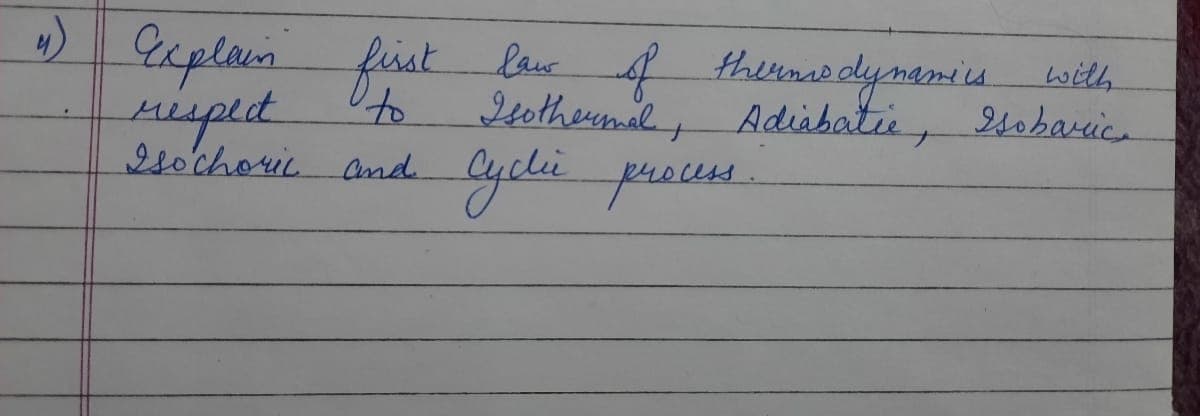 4) Explain first law of thermodynamics with
respect to Isothermal, Adiabatic, Isobaric,
Isochoric and Cyclic process.